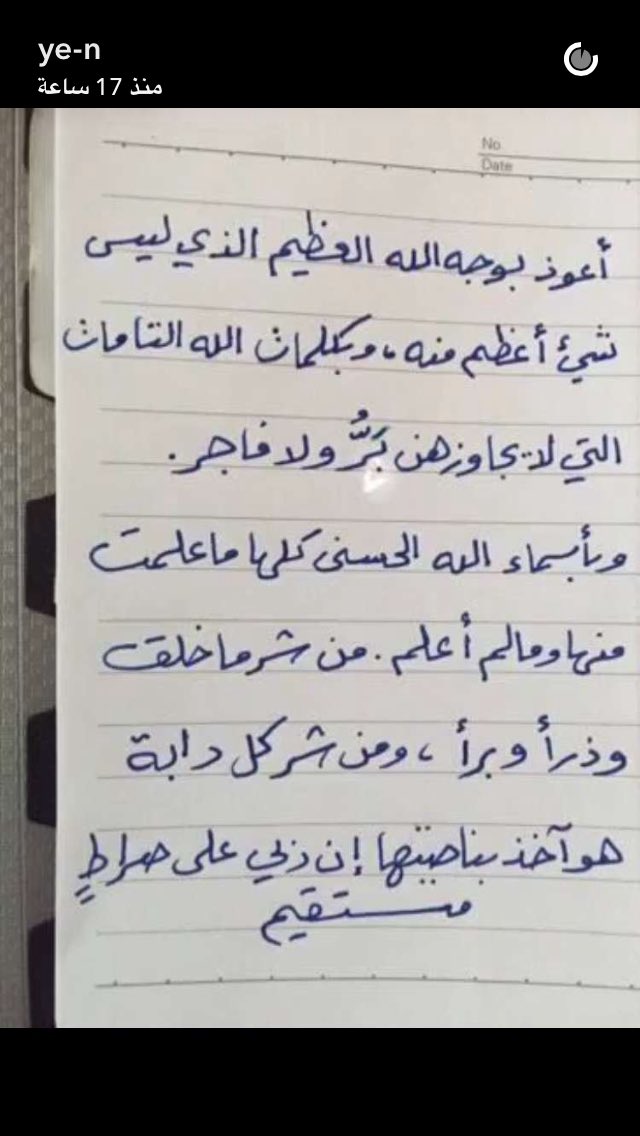 ye-n
منذ 17 ساعة
No
Date
أعوذ بوجه الله العظيم الذي ليس
شيئ أعظم منه، وبكلمات الله التامات
التي لا يجاوزهن بَرُّ ولا فاجر.
وبأسماء الله الحسنى كلها ما علمت
منها ومالم أعلم. من شر ما خلق
وذرأ وبرأ، ومن شر كل دابة
هو آخذ بناصيتها إن ربي على صراطٍ
مستقيم